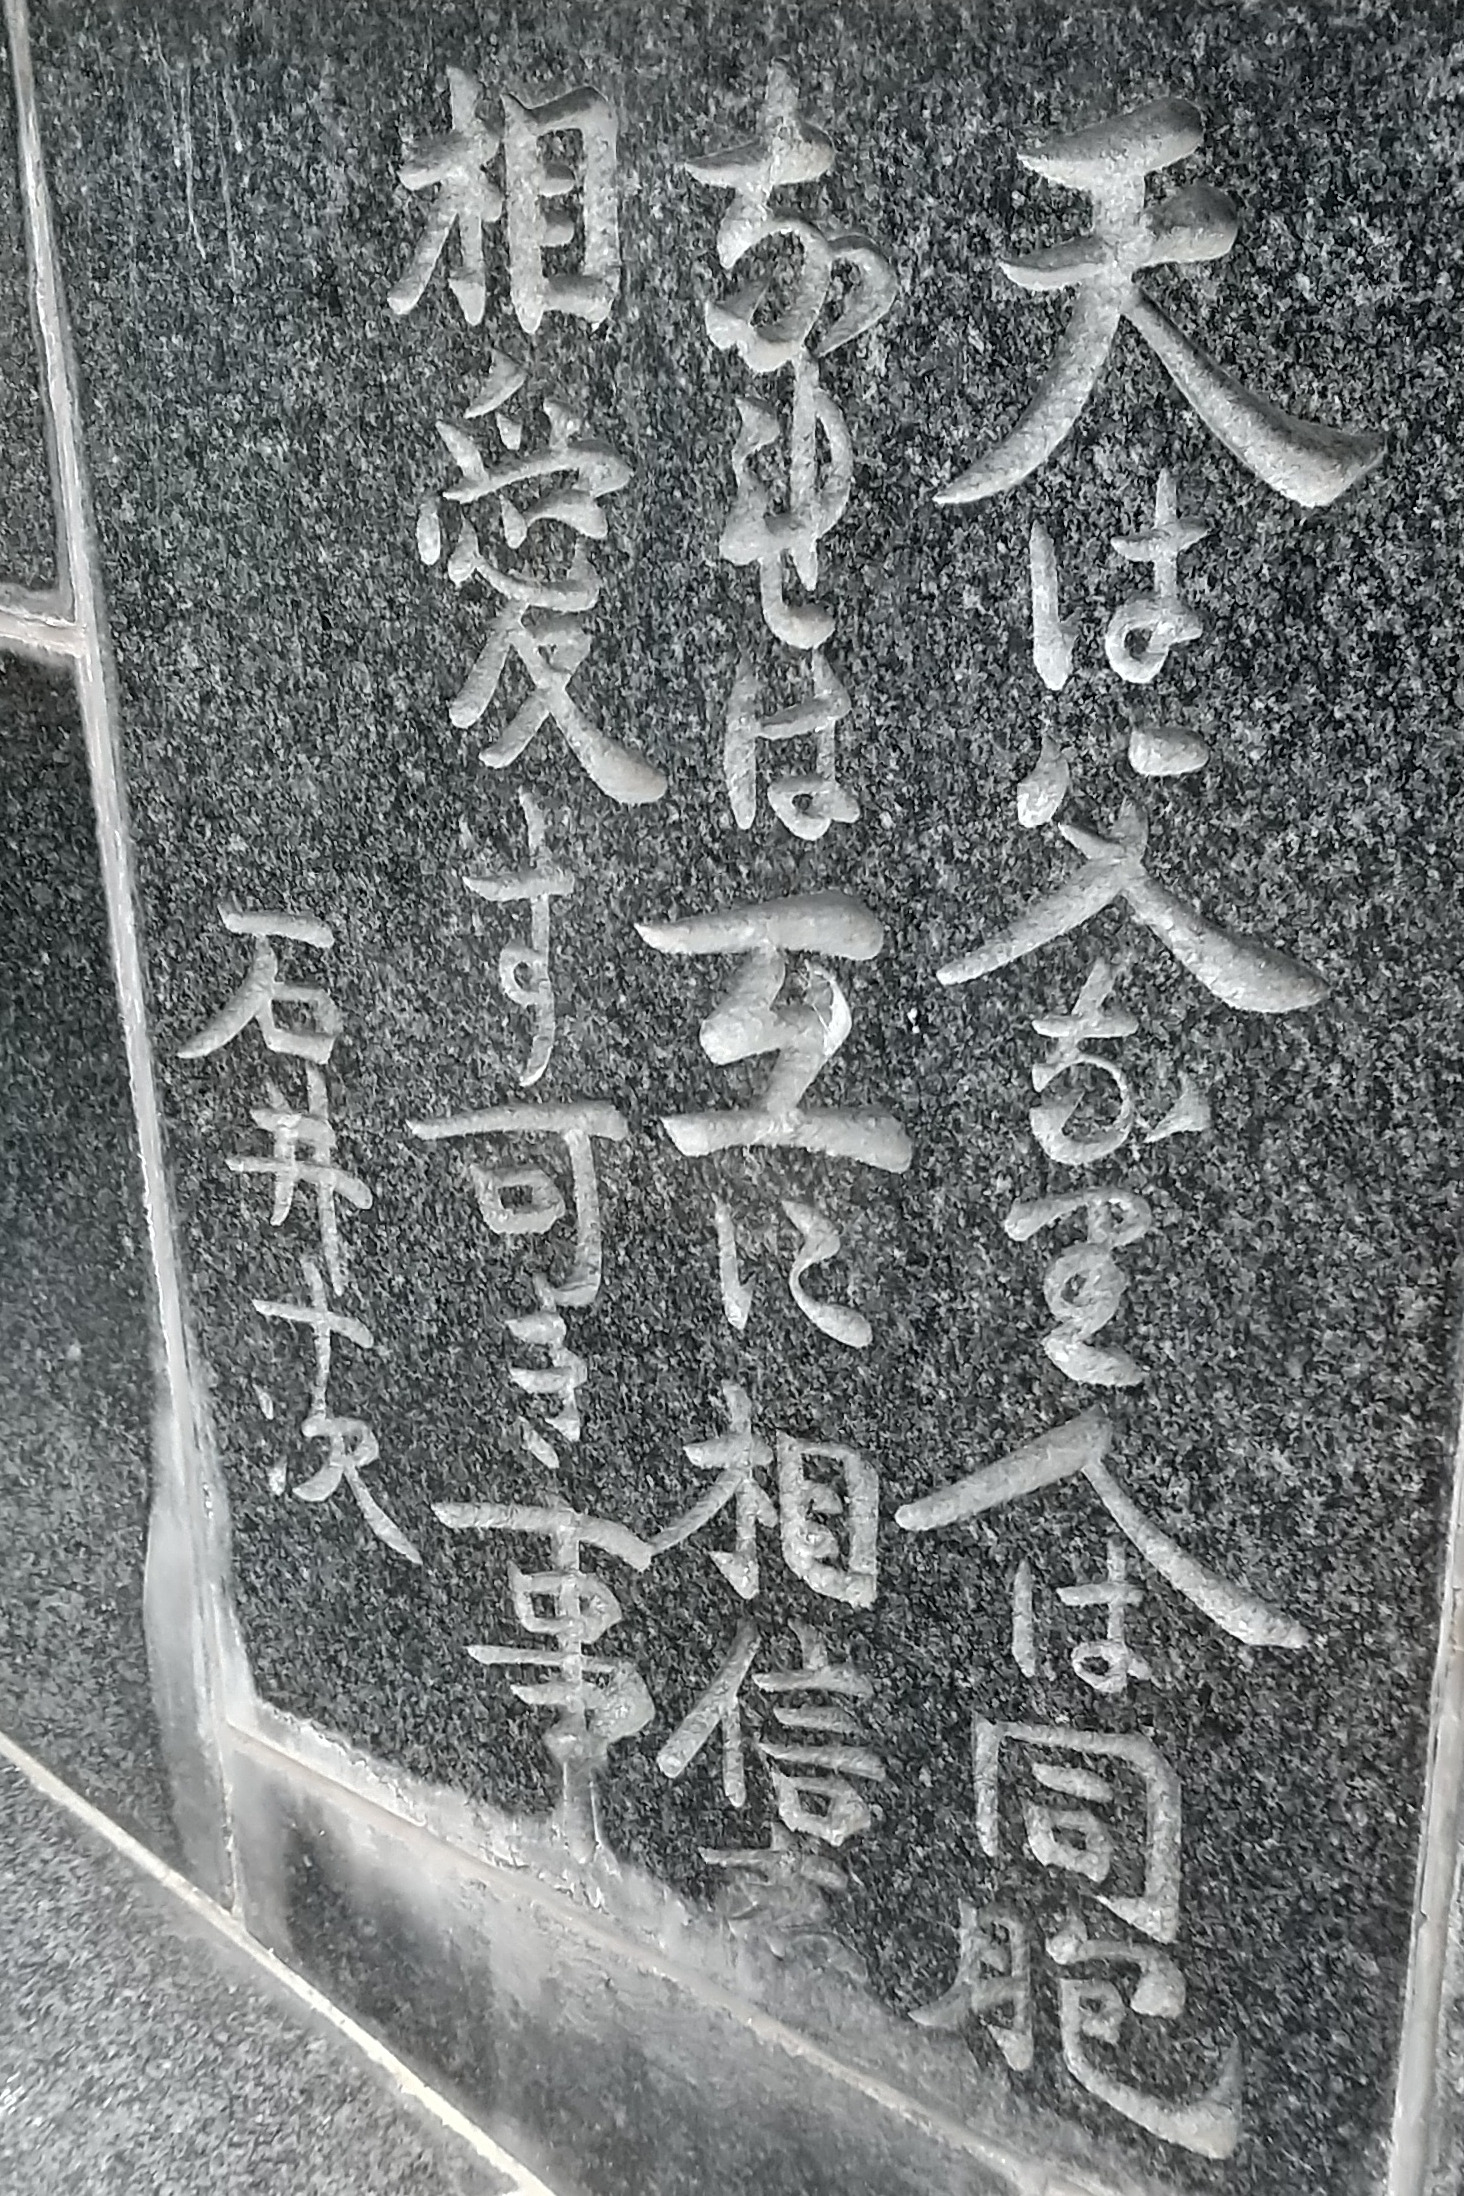 天は父なり人は同胞
なれは互に相信し
相愛す可き事
石井十次